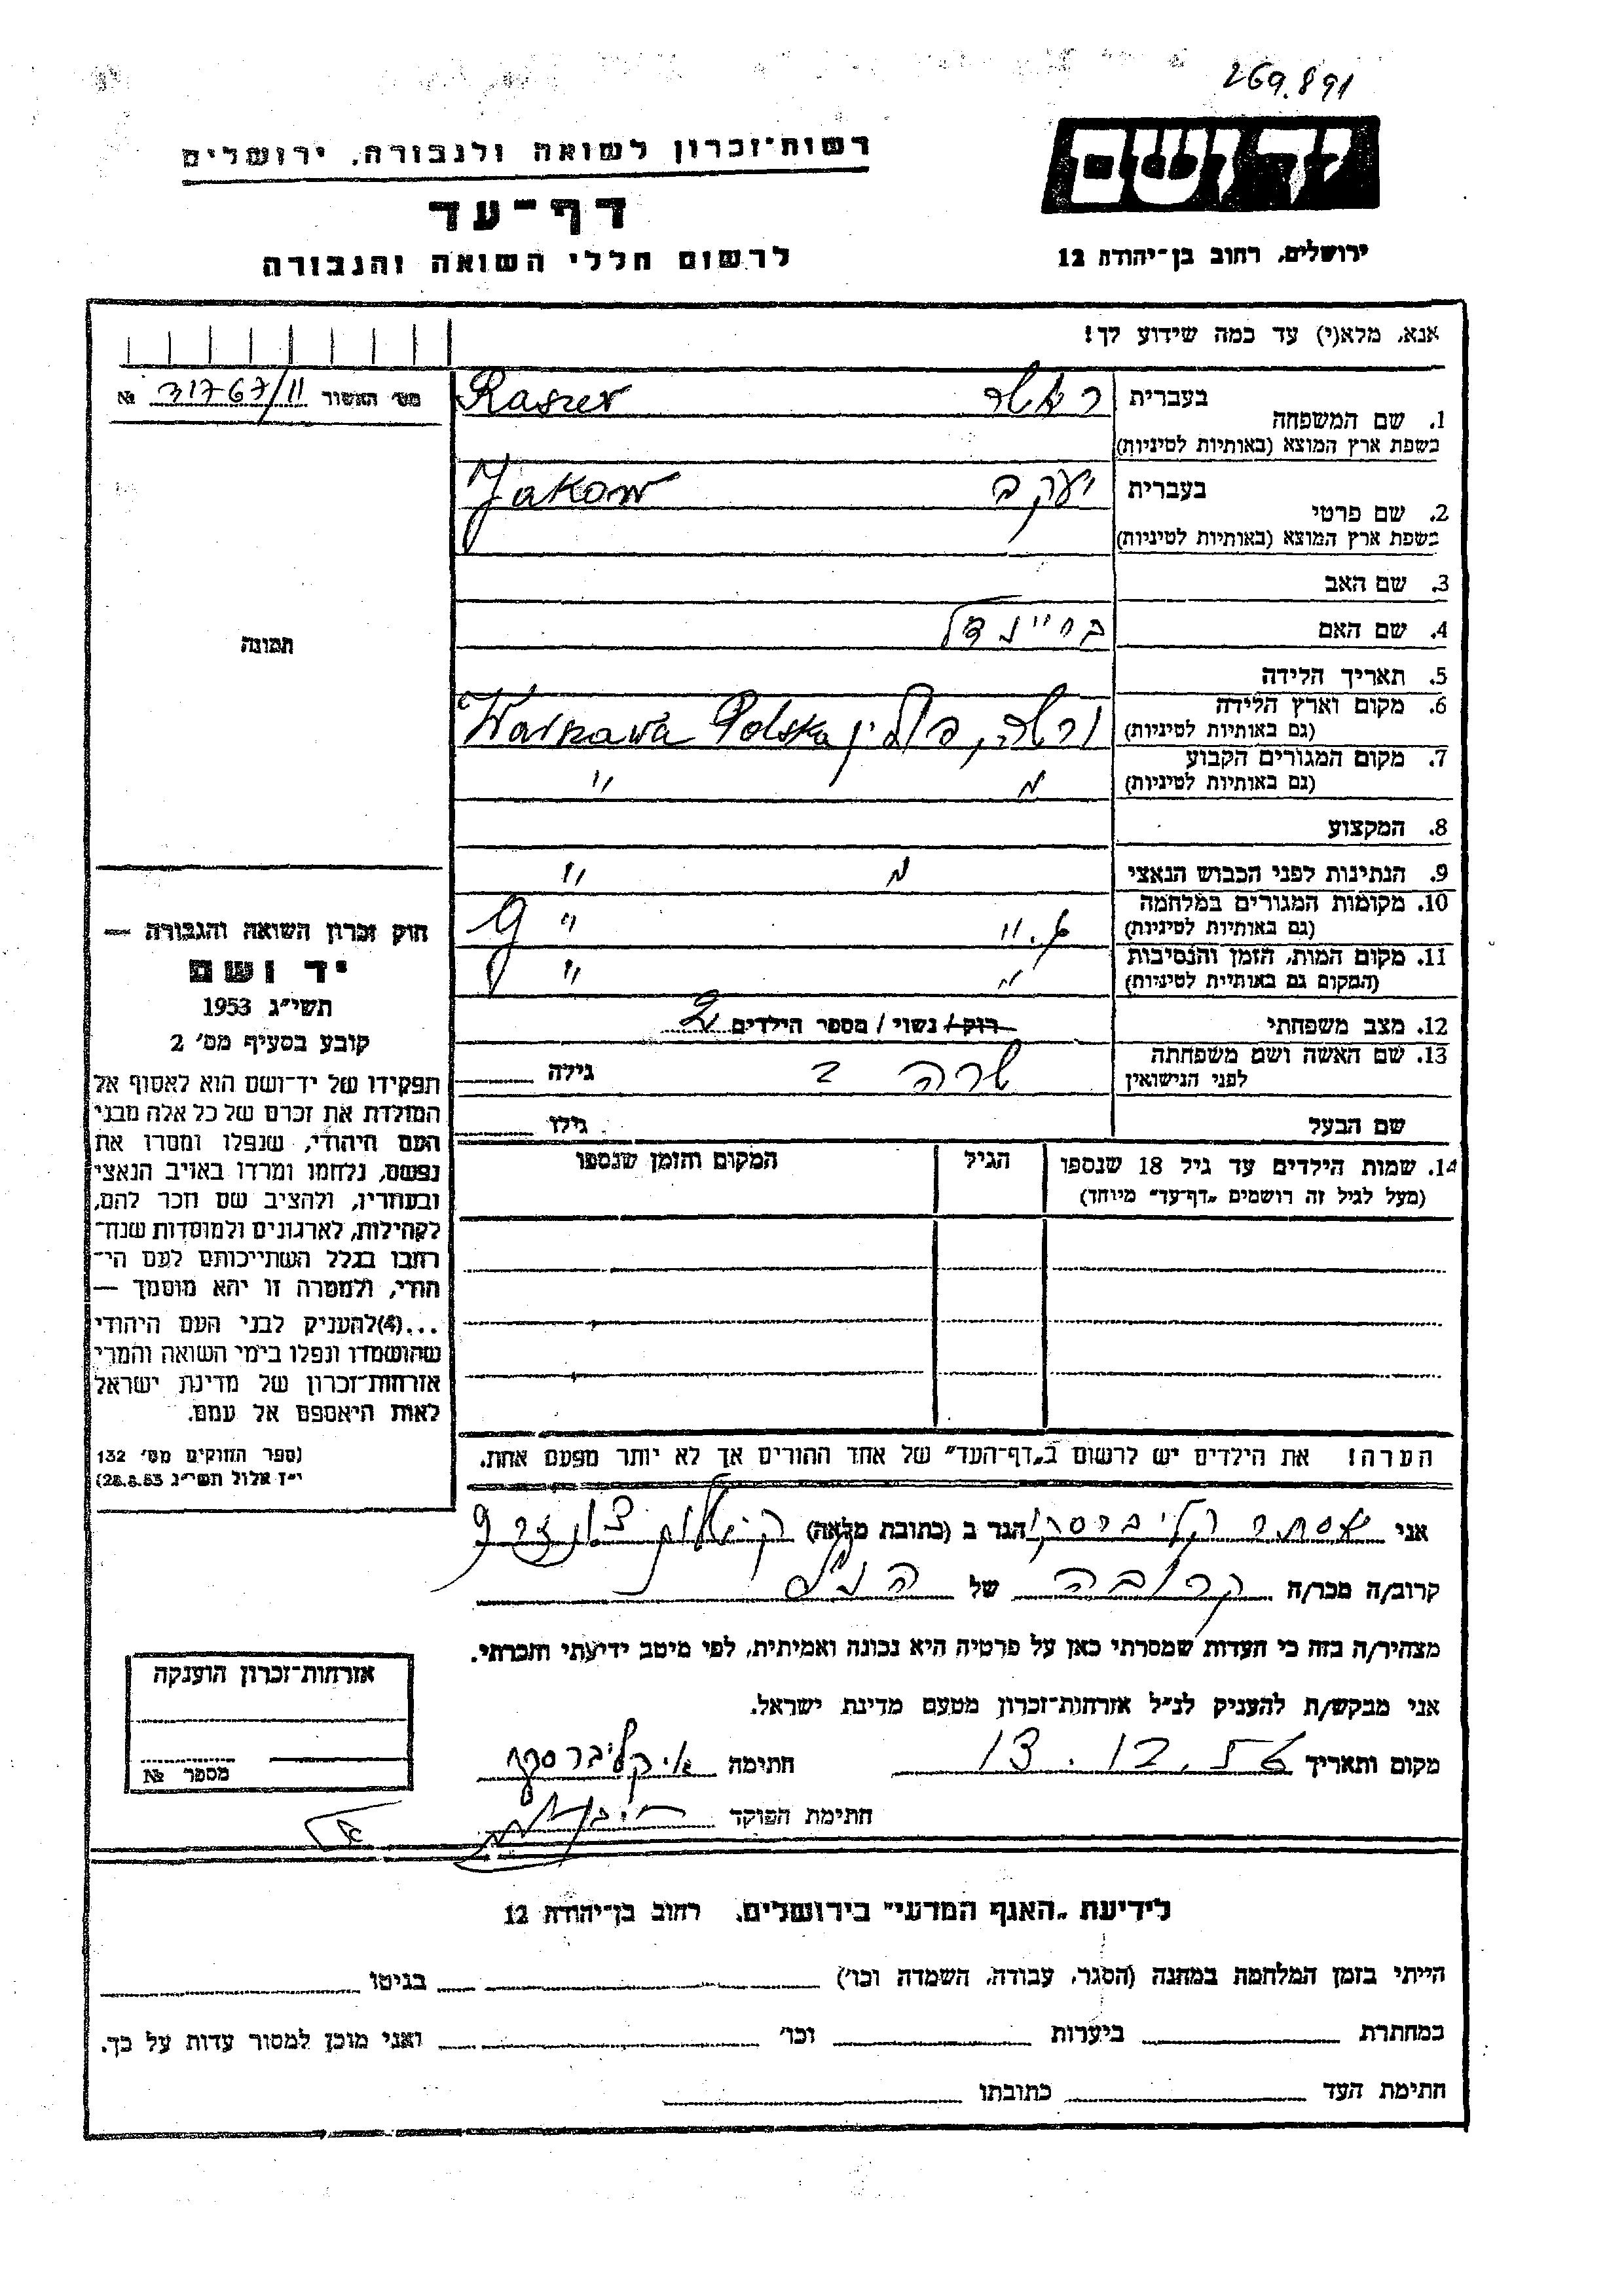 269.891
יד ושם
ירושלים, רחוב בן־יהודה 12
רשות־זכרון לשואה ולגבורה, ירושלים
דף־עד
לרשום חללי השואה והגבורה
אנא, מלא(י) עד כמה שידוע לך!
מס׳ האשור 31767/11 №
תמונה
1. שם המשפחה בעברית ראשר Raszer
בשפת ארץ המוצא (באותיות לטיניות)
2. שם פרטי בעברית יעקב Jakow
בשפת ארץ המוצא (באותיות לטיניות)
3. שם האב
4. שם האם בריינדל
5. תאריך הלידה
6. מקום וארץ הלידה ורשה, פולין Warszawa Polska
(גם באותיות לטיניות)
7. מקום המגורים הקבוע " "
(גם באותיות לטיניות)
8. המקצוע
9. הנתינות לפני הכבוש הנאצי " "
10. מקומות המגורים במלחמה "
(גם באותיות לטיניות)
11. מקום המות, הזמן והנסיבות " "
(המקום גם באותיות לטיניות)
12. מצב משפחתי רוק / נשוי / מספר הילדים 2
13. שם האשה ושם משפחתה שרה גילה
לפני הנישואין
שם הבעל גילו
14. שמות הילדים עד גיל 18 שנספו הגיל המקום והזמן שנספו
(מעל לגיל זה רושמים „דף־עד״ מיוחד)
חוק זכרון השואה והגבורה —
יד ושם
תשי״ג 1953
קובע בסעיף מס׳ 2
תפקידו של יד־ושם הוא לאסוף אל
המולדת את זכרם של כל אלה מבני
העם היהודי, שנפלו ומסרו את
נפשם, נלחמו ומרדו באויב הנאצי
ובעוזריו, ולהציב שם וזכר להם,
לקהילות, לארגונים ולמוסדות שנח־
רבו בגלל השתייכותם לעם הי־
הודי, ולמטרה זו יהא מוסמך —
...(4)להעניק לבני העם היהודי
שהושמדו ונפלו בימי השואה והמרי
אזרחות־זכרון של מדינת ישראל
לאות היאספם אל עמם.
(ספר החוקים מס׳ 132
י״ז אלול תשי״ג 28.8.53)
הערה! את הילדים יש לרשום ב„דף־העד״ של אחד ההורים אך לא יותר מפעם אחת.
אני אסתר קליברסקי הגר ב (כתובת מלאה)
קרוב/ה מכר/ה קרובה של הנ״ל
מצהיר/ה בזה כי העדות שמסרתי כאן על פרטיה היא נכונה ואמיתית, לפי מיטב ידיעתי והכרתי.
אני מבקש/ת להעניק לנ״ל אזרחות־זכרון מטעם מדינת ישראל.
מקום ותאריך 13.12. חתימה א. קליברסקי
חתימת הפוקד
אזרחות־זכרון הוענקה
מספר №
לידיעת „האגף המדעי״ בירושלים, רחוב בן־יהודה 12
הייתי בזמן המלחמה במחנה (הסגר, עבודה, השמדה וכו׳) בגיטו
במחתרת ביערות וכו׳ ואני מוכן למסור עדות על כך.
חתימת העד כתובתו